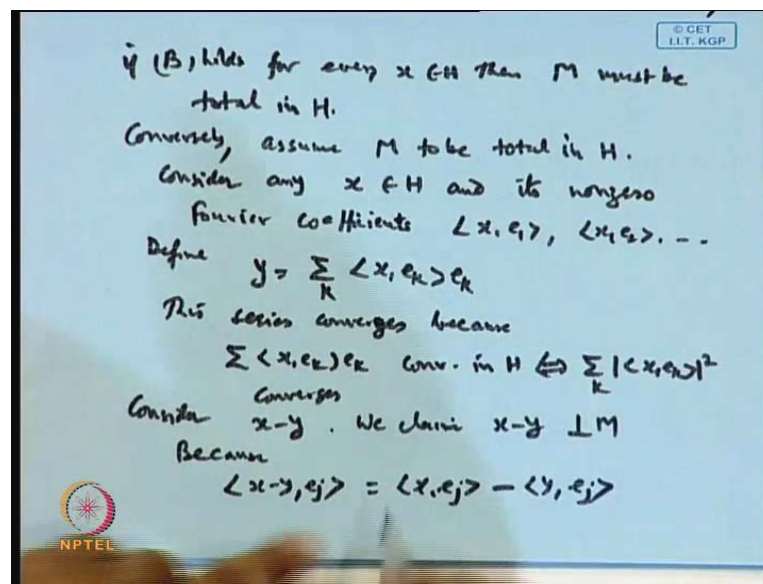 © CET
I.I.T. KGP
if (B) holds for every x ∈ H then M must be
total in H.
Conversely, assume M to be total in H.
Consider any x ∈ H and its nonzero
Fourier coefficients <x, e₁>, <x, e₂>, ...
Define y = ∑ₖ <x, eₖ> eₖ
This series converges because
∑ <x, eₖ) eₖ conv. in H ⇔ ∑ₖ |<x, eₖ>|²
converges
Consider x-y. We claim x-y ⊥ M
Because
<x-y, eⱼ> = <x, eⱼ> - <y, eⱼ>
NPTEL